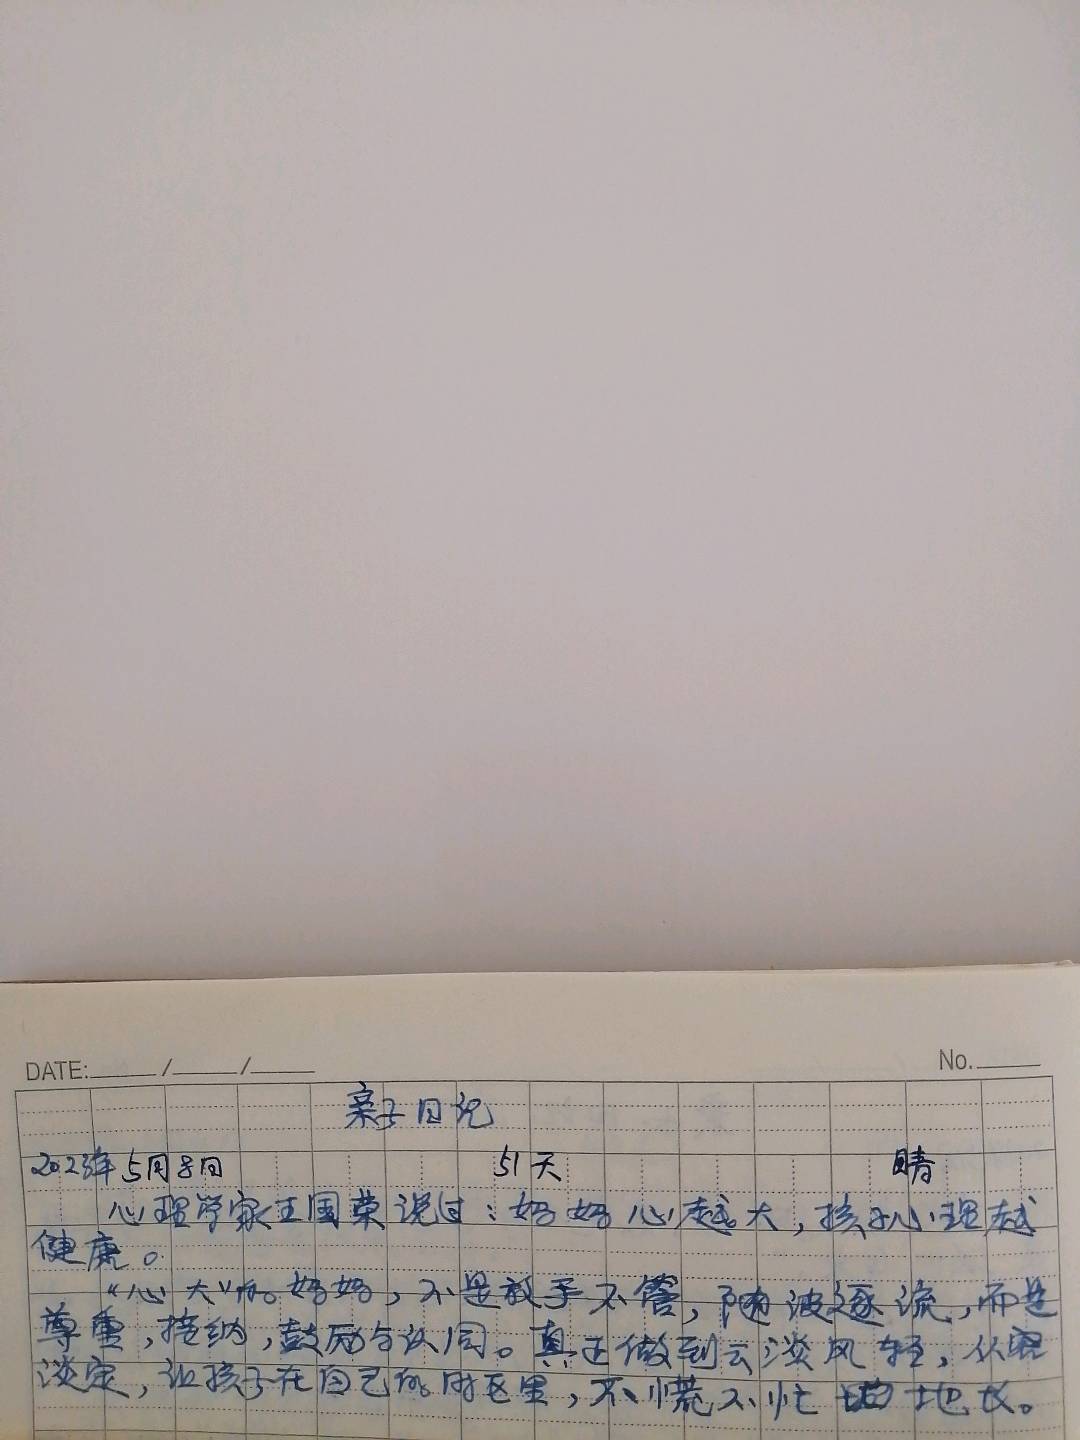 DATE:____/____/____ No.____
亲子日记
2023年5月8日 51天 晴
心理学家王国荣说过：妈妈心越大，孩子心理越
健康。
“心大”的妈妈，不是放手不管，随波逐流，而是
尊重，接纳，鼓励与认同。真正做到云淡风轻，从容
淡定，让孩子在自己的时区里，不慌不忙地长。